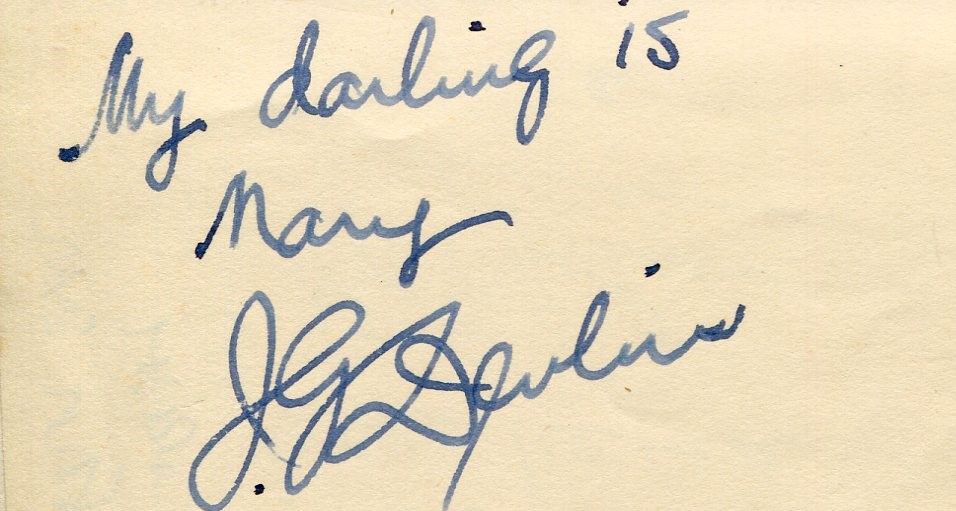 My darling is
Mary
J.G. Devlin